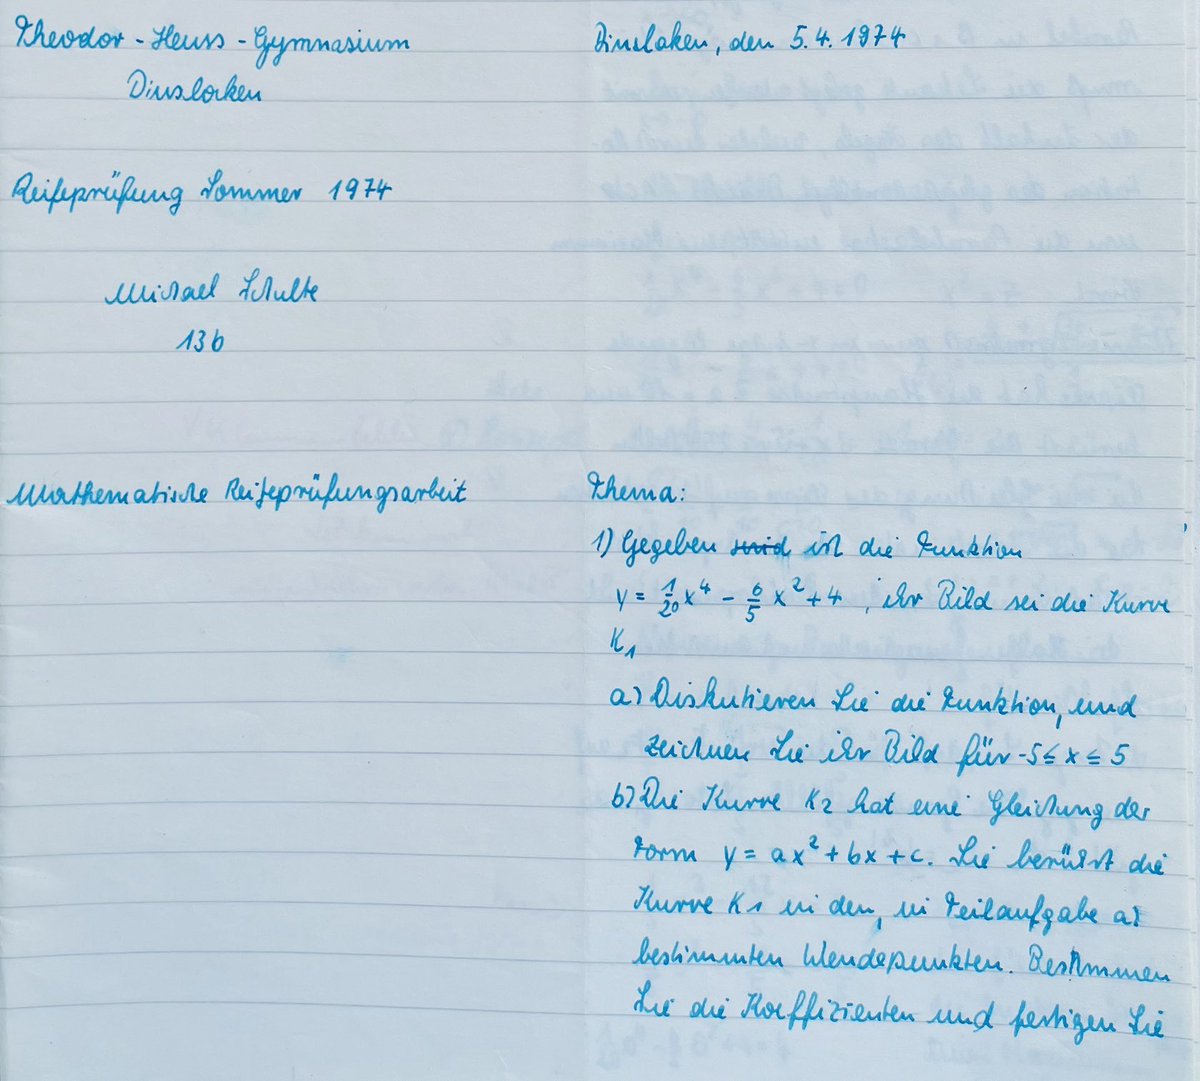 Theodor-Heuss-Gymnasium
Dinslaken
Dinslaken, den 5.4.1974
Reifeprüfung Sommer 1974
Michael Schulte
13b
Mathematische Reifeprüfungsarbeit
Thema:
1) Gegeben sind ist die Funktion
y = 1/20 x⁴ - 6/5 x² + 4, ihr Bild sei die Kurve
K₁
a) Diskutieren Sie die Funktion, und
zeichnen Sie ihr Bild für -5 ≤ x ≤ 5
b) Die Kurve K₂ hat eine Gleichung der
Form y = ax² + bx + c. Sie berührt die
Kurve K₁ in den, in Teilaufgabe a)
bestimmten Wendepunkten. Bestimmen
Sie die Koeffizienten und fertigen Sie